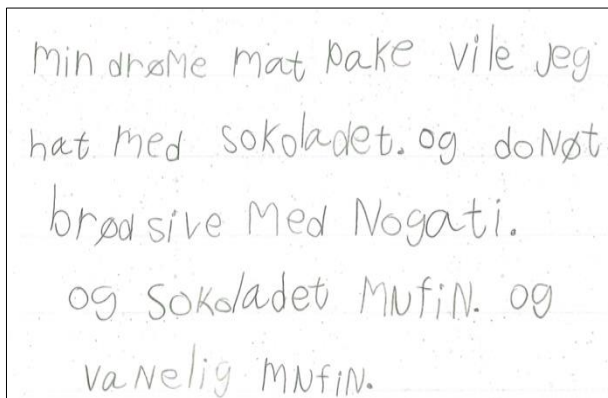 min drøme mat pake vile jeg
hat med sokoladet. og doNøt.
brødsive Med Nogati.
og sokoladet MNfiN. og
vaNelig MNfiN.